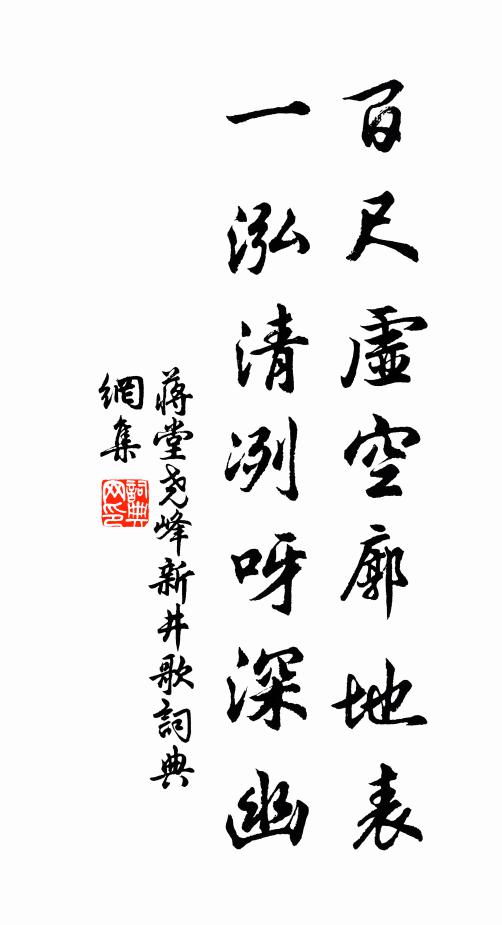 百尺虛空廓地表
一泓清冽呀深幽
蔣堂堯峰新井歌詞典
網集
詞典
网印